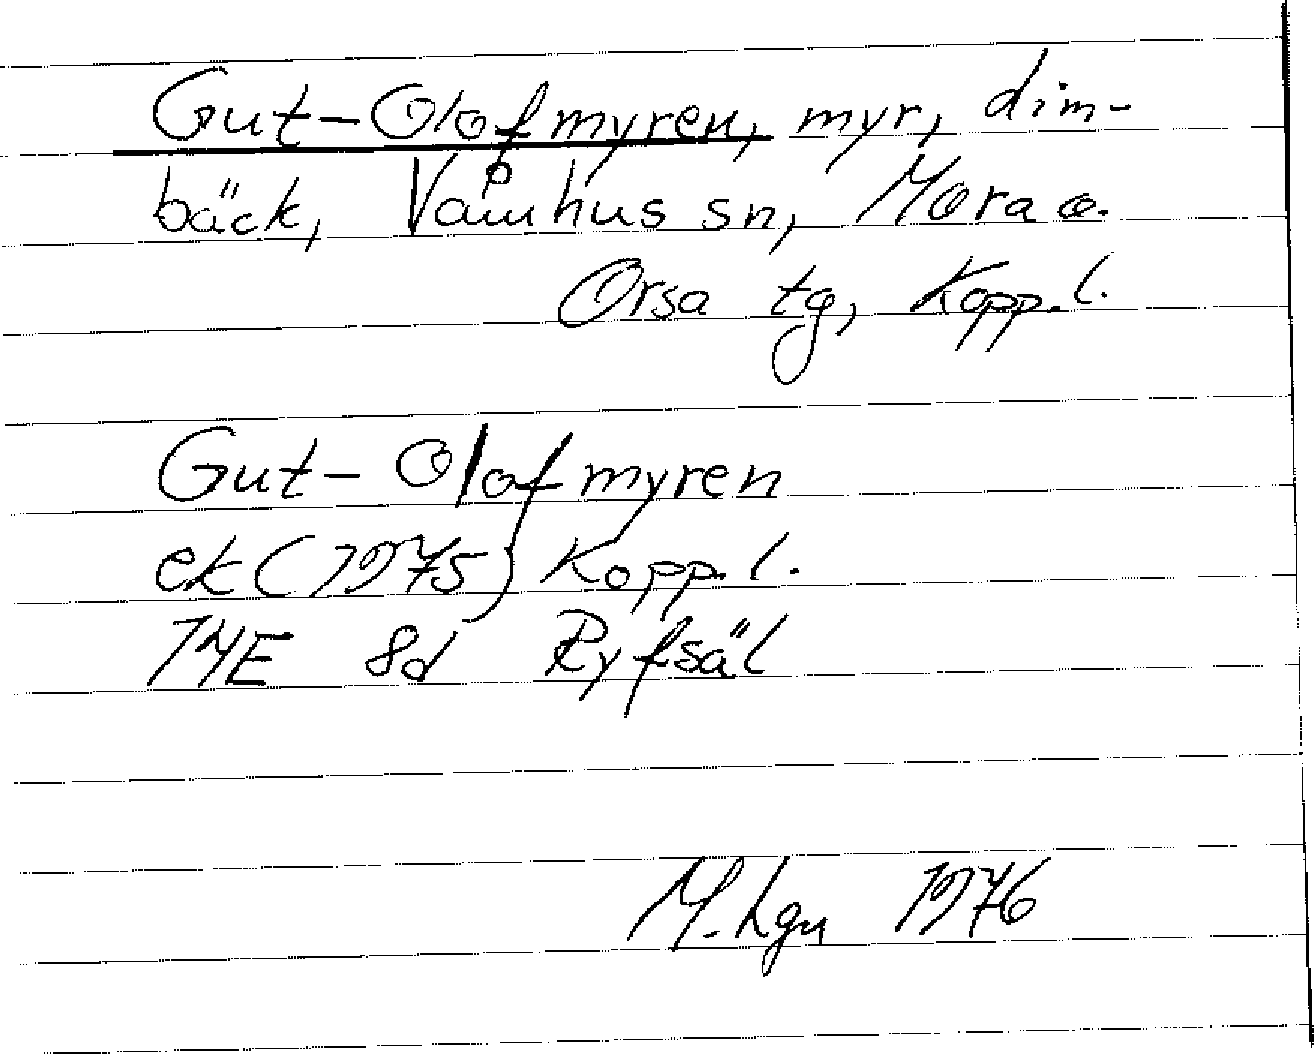 Gut-Olofmyren, myr, dim-
bäck, Våmhus sn, Mora o.
Orsa tg, Kopp. l.
Gut-Olofmyren
ek (1975) Kopp. l.
14E 8d Ryfsäl
M. Lgn 1976